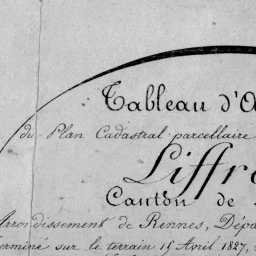 Tableau d'A
du Plan Cadastral parcellaire
Liffr
Canton de
Arrondissement de Rennes, Dépa
Terminé sur le terrain 15 Avril 1827,